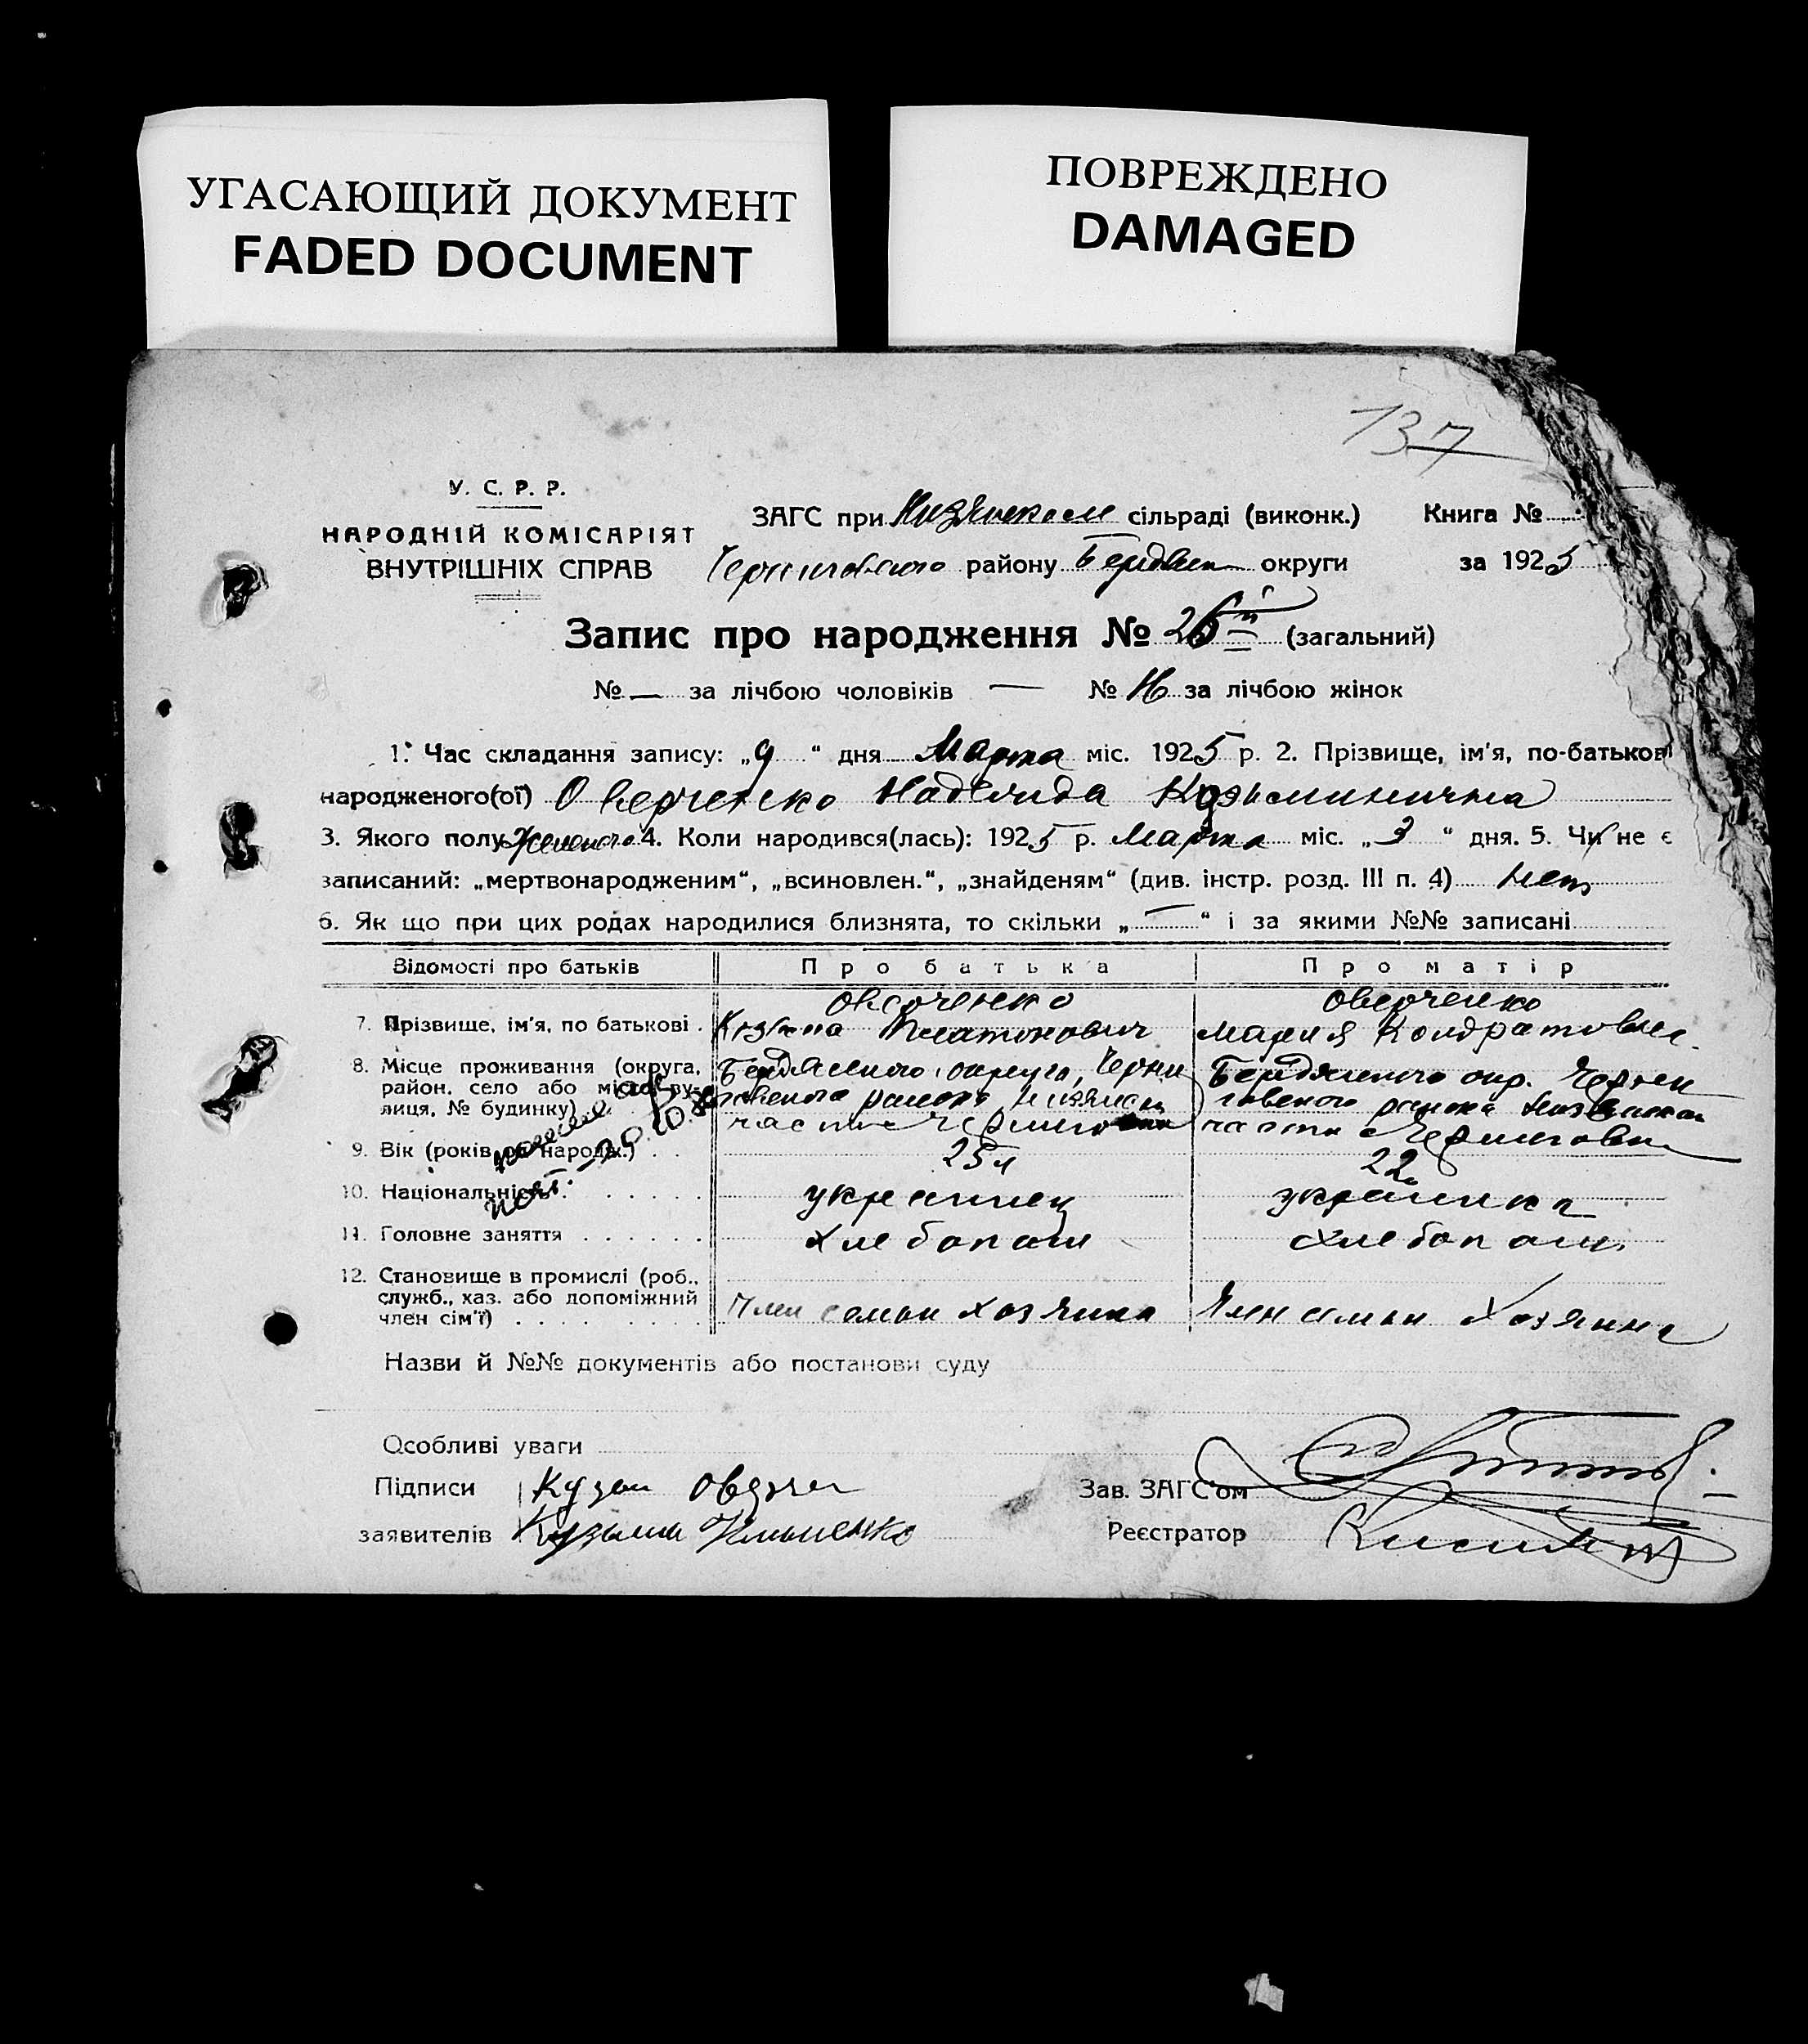 УГАСАЮЩИЙ ДОКУМЕНТ
FADED DOCUMENT
ПОВРЕЖДЕНО
DAMAGED
137
У. С. Р. Р.
НАРОДНІЙ КОМІСАРІЯТ
ВНУТРІШНІХ СПРАВ
ЗАГС при сільраді (виконк.) Книга №
району Бердян округи за 1925
Запис про народження № 26 (загальний)
№ — за лічбою чоловіків — № 16 за лічбою жінок
1. Час складання запису: „9“ дня Марта міс. 1925 р. 2. Прізвище, ім'я, по-батькові
народженого(ої) Оверченко Надежда Козьминична
3. Якого полу женского 4. Коли народився(лась): 1925 р. Марта міс. „3“ дня. 5. Чи не є
записаний: „мертвонародженим“, „всиновлен.“, „знайденям“ (див. інстр. розд. III п. 4) нет
6. Як що при цих родах народилися близнята, то скільки „—“ і за якими №№ записані
Відомості про батьків Про батька Про матір
Оверченко Оверченко
7. Прізвище, ім'я, по батькові Козьма Платонович Мария Кондратовна
8. Місце проживання (округа, Бердянского округа, Черни Бердянского окр. Черни
район, село або місто, ву- говского района Низянской говского района Низянской
лиця, № будинку) части Черниговки части Черниговки
9. Вік (років од народж.) 25 л 22
10. Національність украинец украинка
11. Головне заняття хлебопаш хлебопаш.
12. Становище в промислі (роб.,
служб., хаз. або допоміжний
член сім'ї) Член семьи хозяина Член семьи хозяина
Назви й №№ документів або постанови суду
Особливі уваги
Підписи
Зав. ЗАГС'ом
заявителів Кузьма
Реєстратор